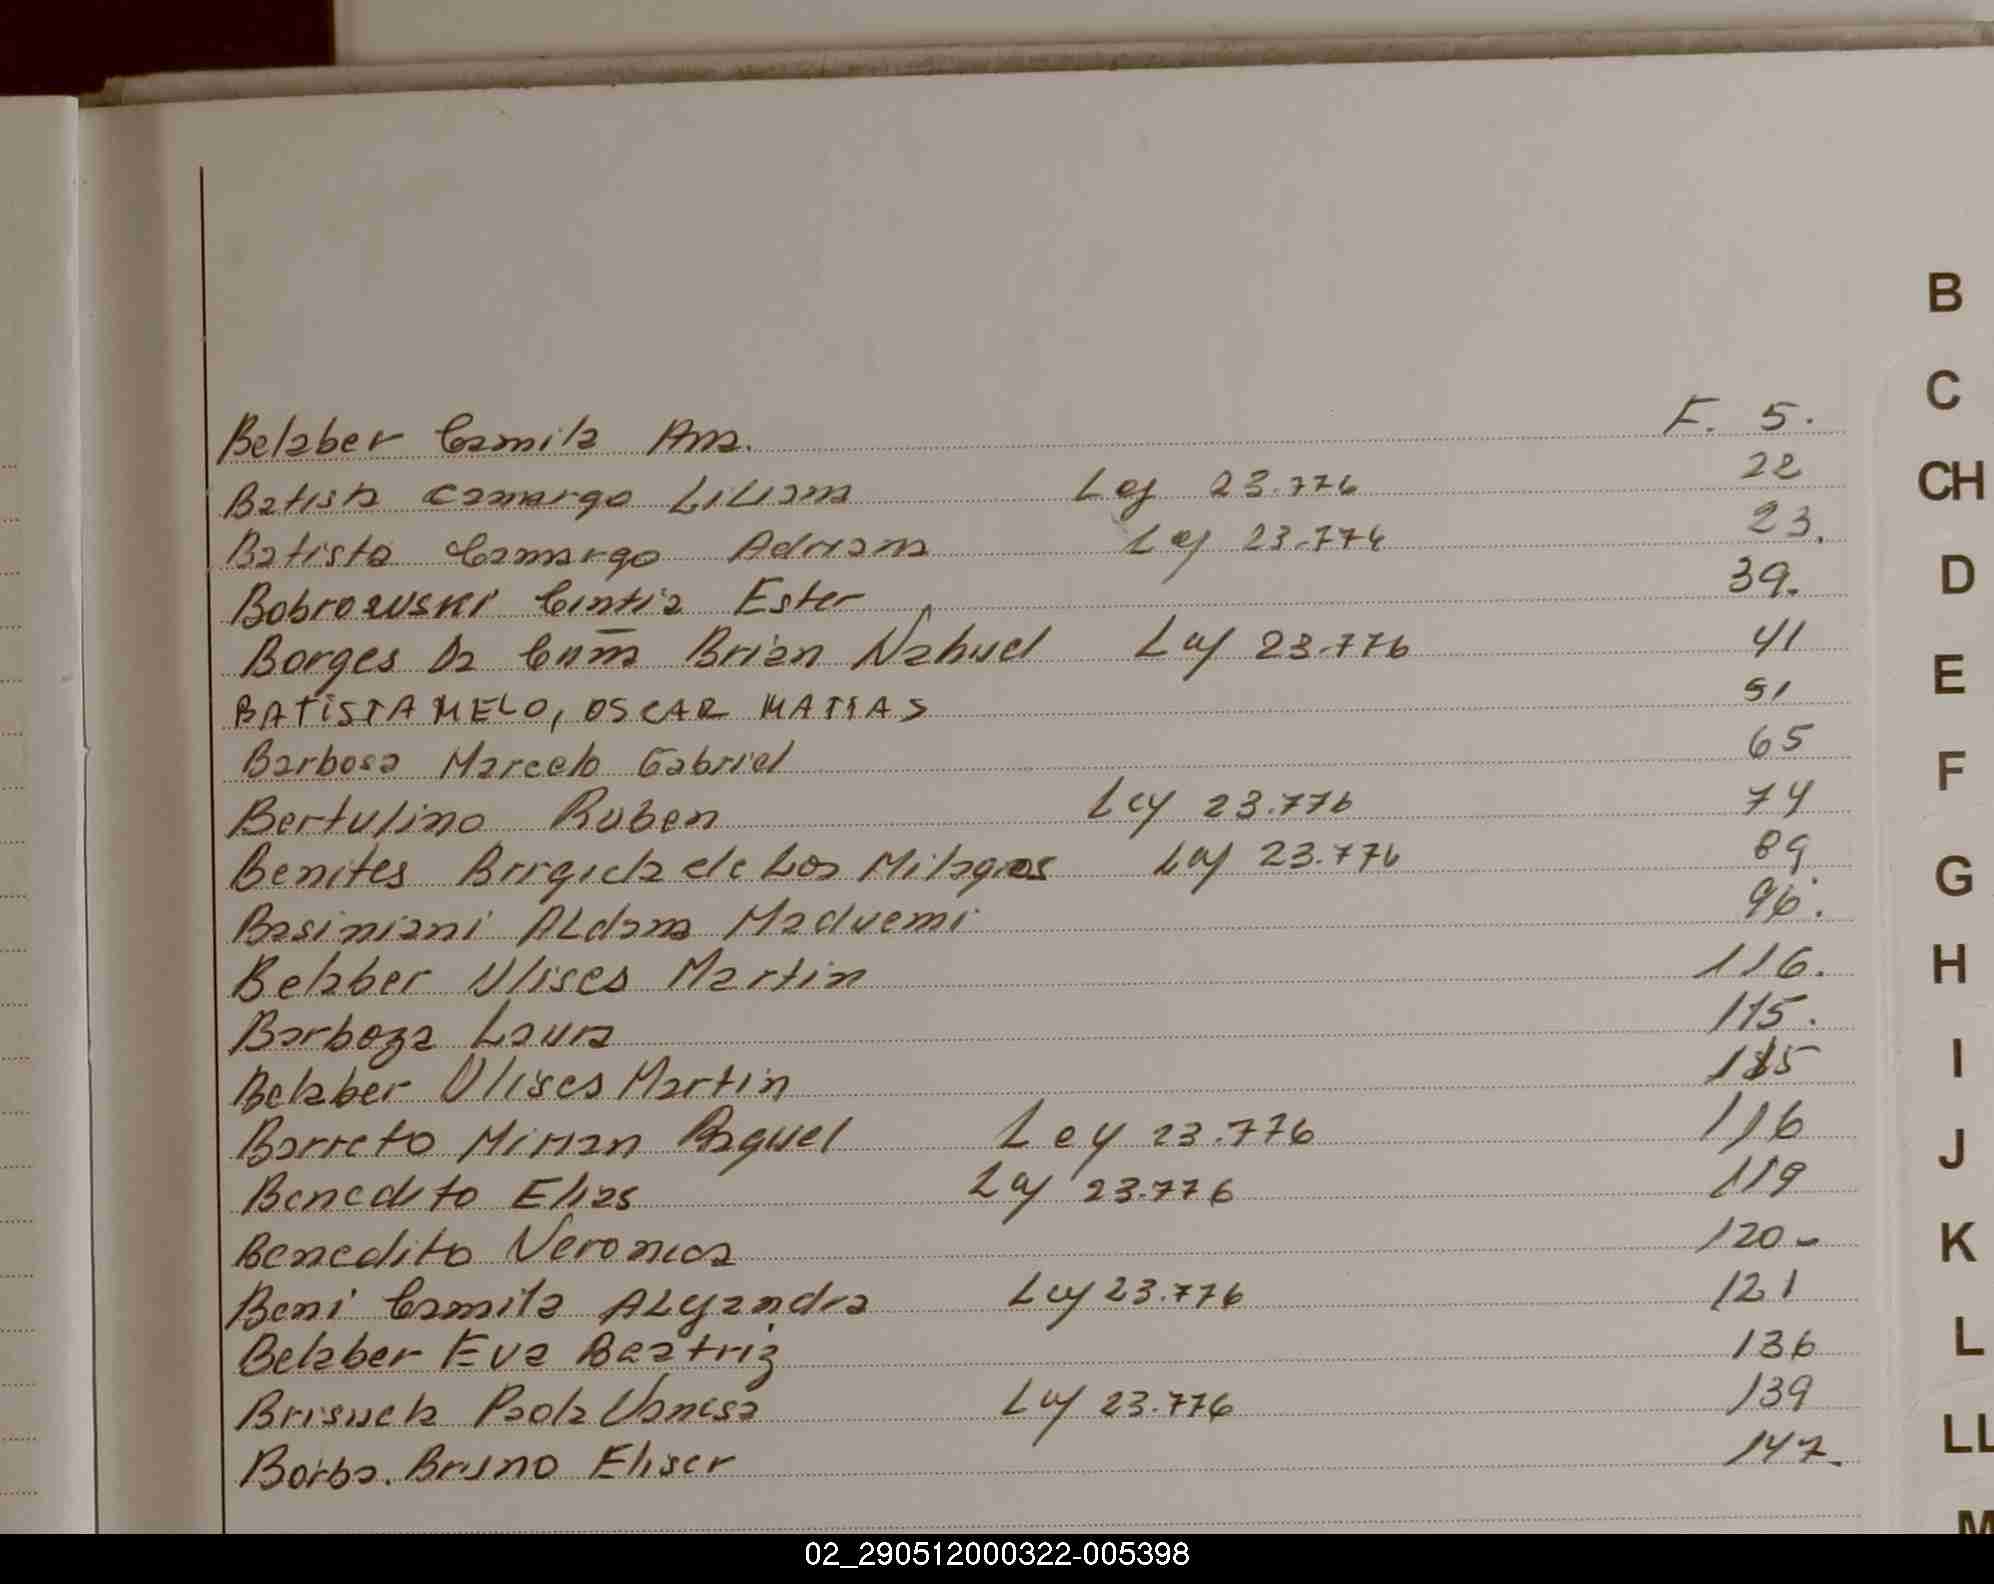 Belaber Camila Ana. F. 5.
Batista Camargo Liliana Ley 23.776 22
Batista Camargo Adriana Ley 23.776 23.
Bobrowski Cintia Ester 39.
Borges Da Brian Nahuel Ley 23.776 41
BATISTA MELO, OSCAR MATIAS 51
Barbosa Marcelo Gabriel 65
Bertulino Ruben Ley 23.776 74
Benites Brigida de Los Milagros Ley 23.776 89
Basiniani Aldana Maduemi 96.
Belaber Ulises Martin 116.
Barboza Laura 115.
Belaber Ulises Martin 115
Barreto Mirian Raquel Ley 23.776 116
Benedito Elias Ley 23.776 119
Benedito Veronica 120-
Beni Camila Alejandra Ley 23.776 121
Belaber Eva Beatriz 136
Brisuela Paola Vanesa Ley 23.776 139
Borba. Bruno Elieser 147.
B
C
CH
D
E
F
G
H
I
J
K
L
LL
M
02_290512000322-005398